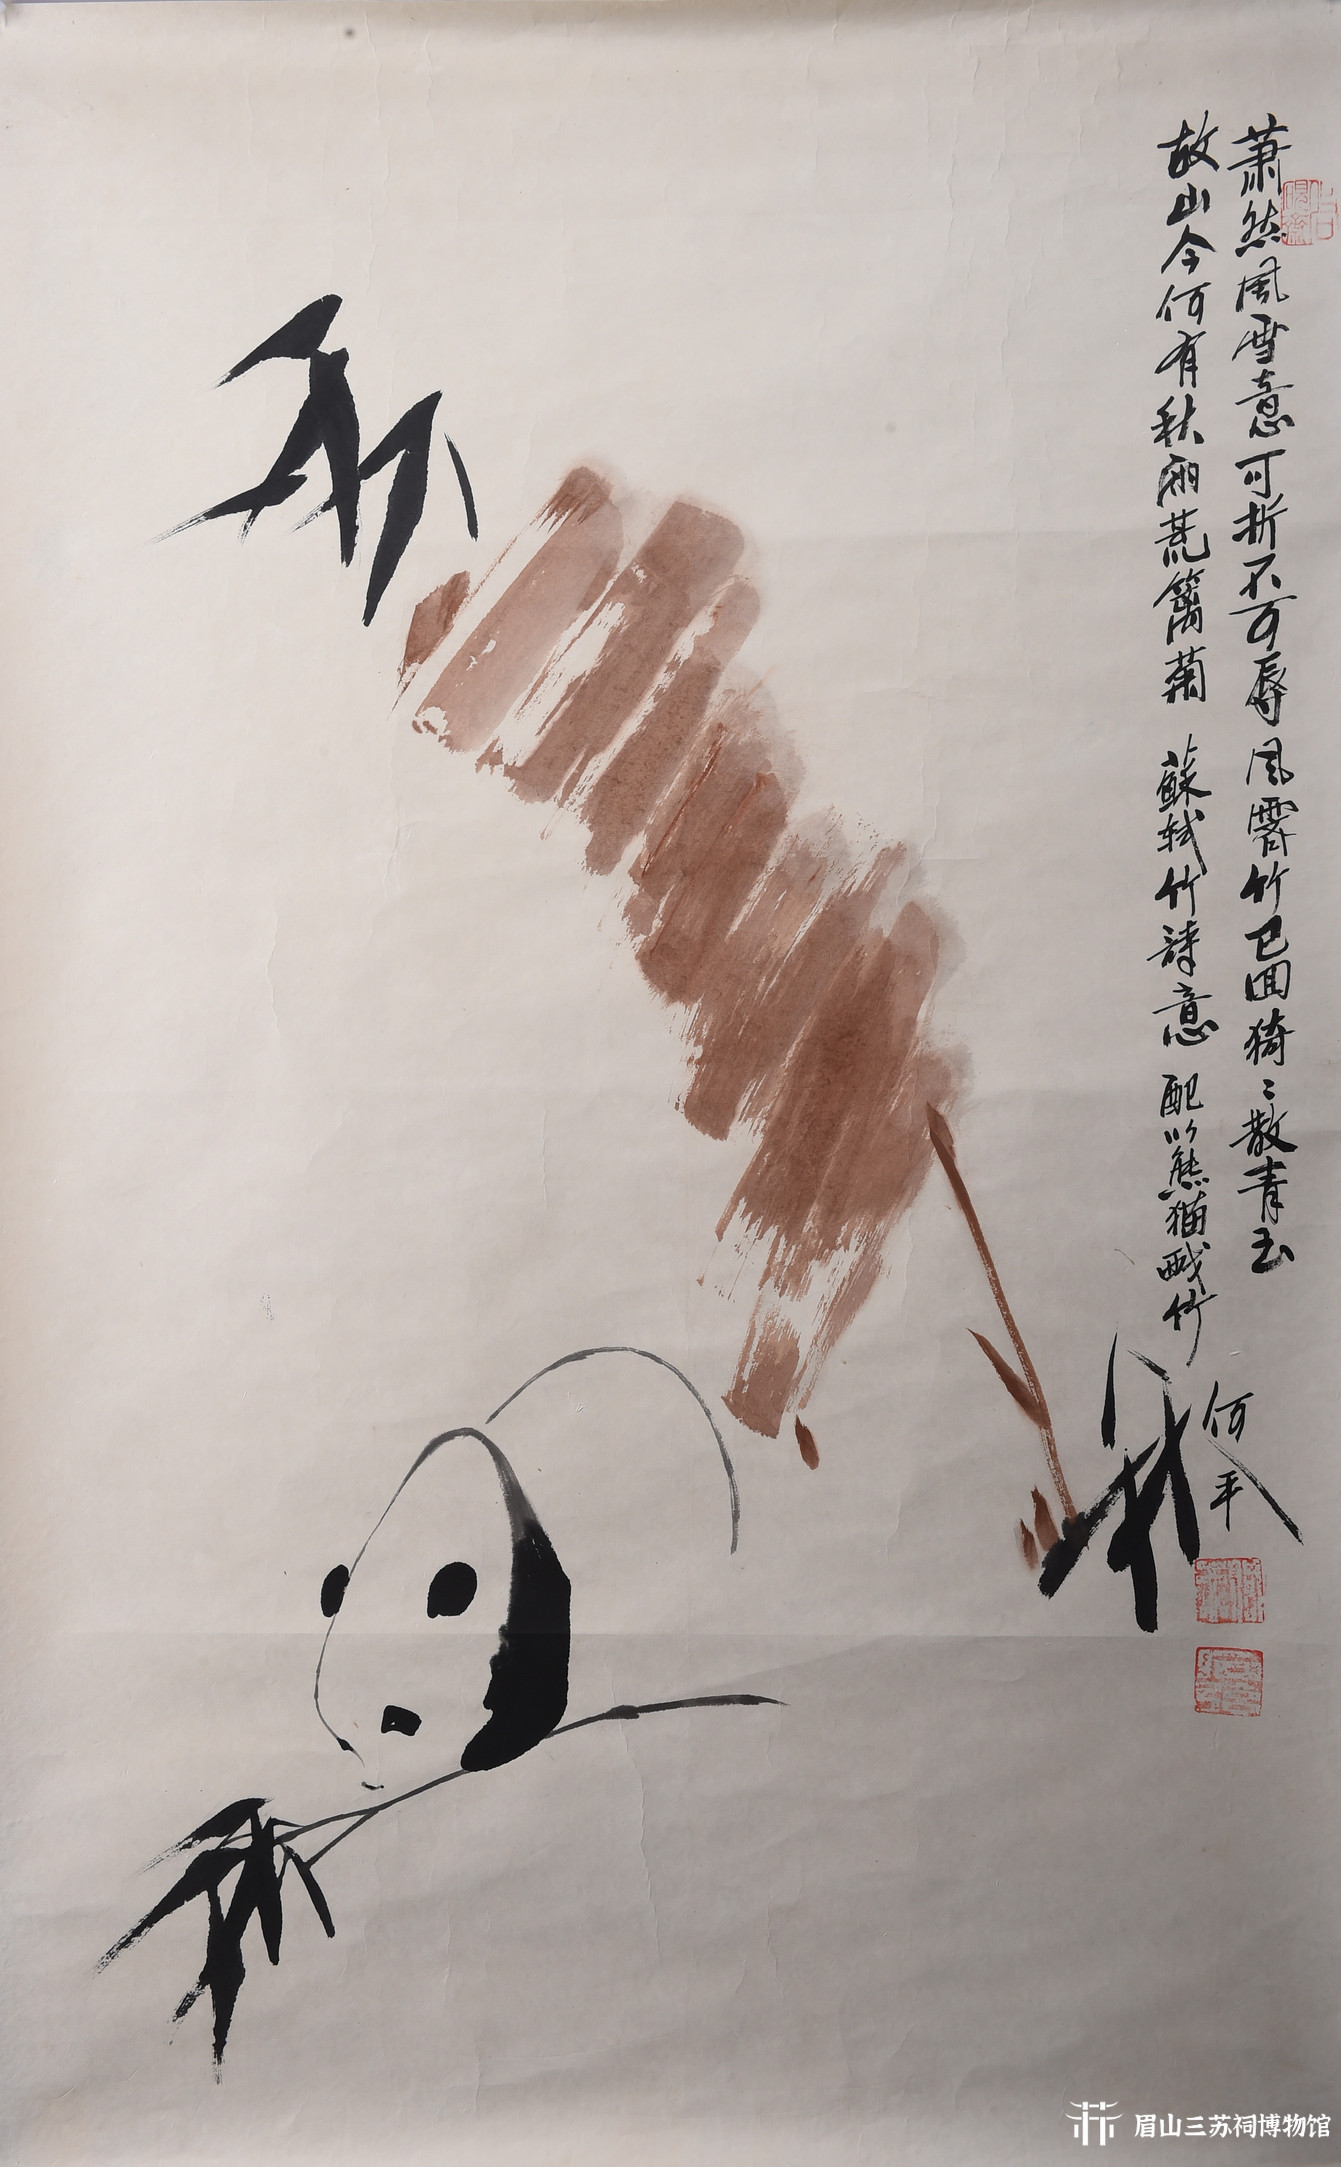 萧然風雪意可折不可辱風霽竹已回猗〻散青玉
故山今何有秋雨荒篱菊 蘇軾竹詩意 配以熊猫戏竹
何平
眉山三苏祠博物馆